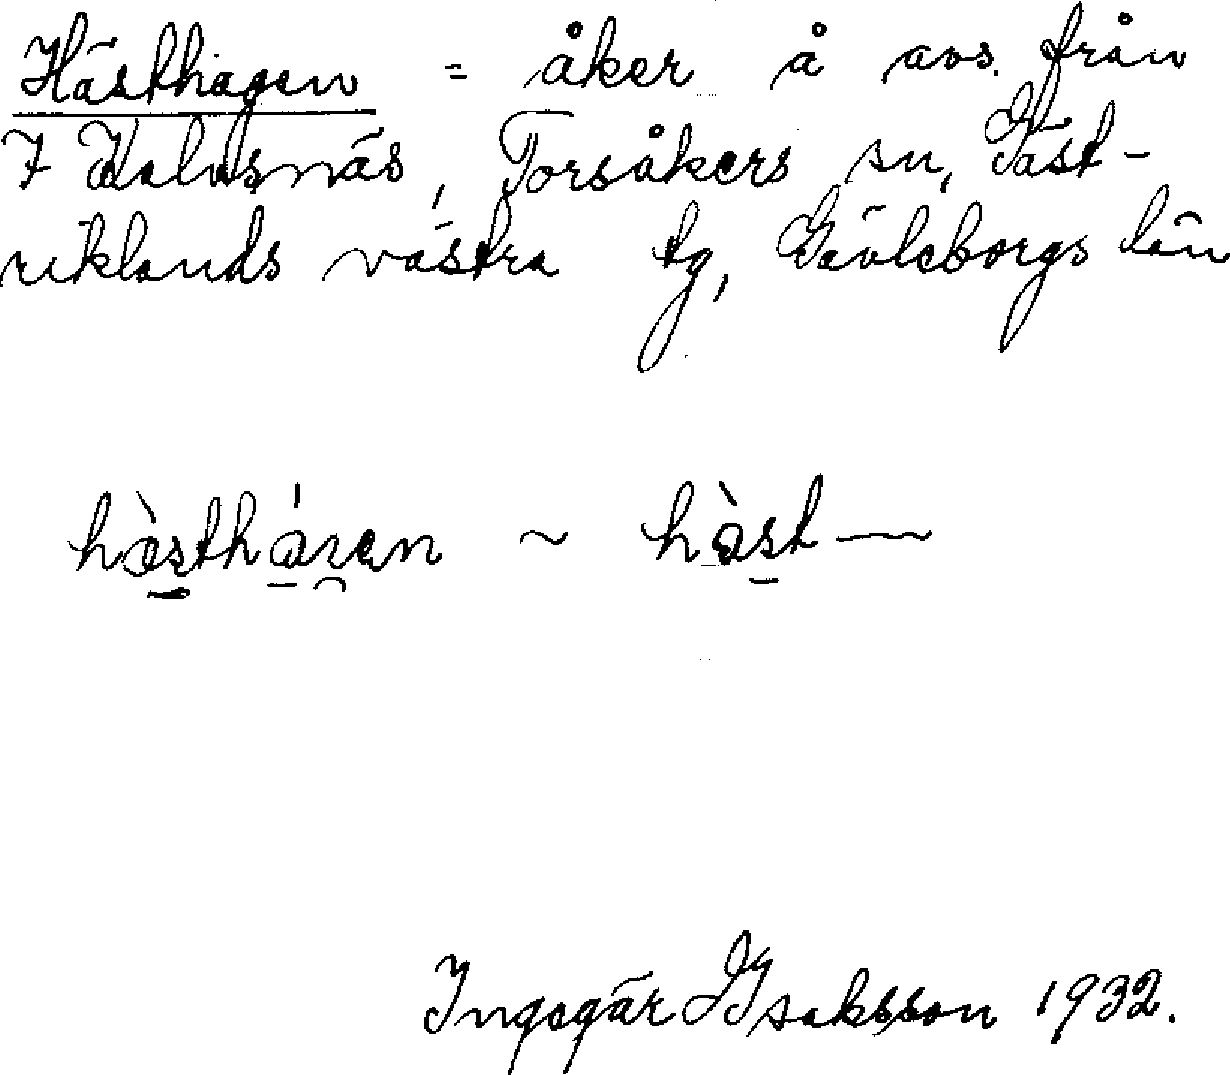 Hästhagen = åker å avs. från
7 Kalvsnäs, Torsåkers sn, Gäst-
riklands västra tg, Gävleborgs län
hàsth́agen ~ hàst—
Ingegär Isaksson 1932.